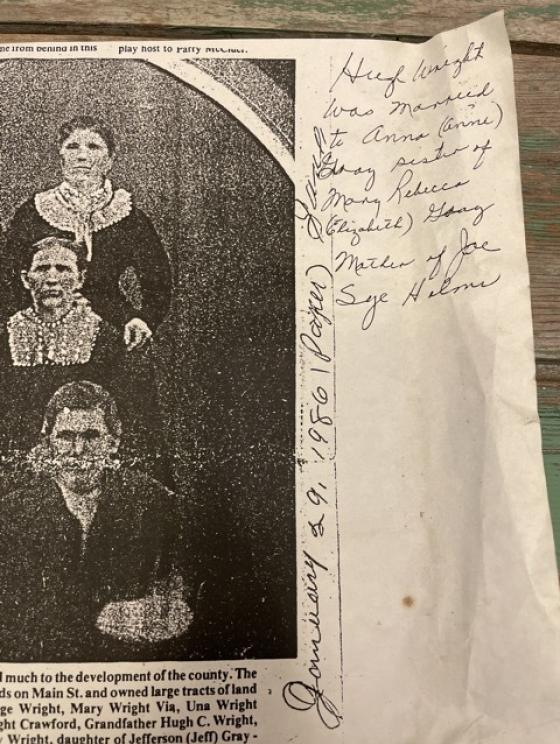 play host to Parry McCluer.
Hugh Wright
was married
to Anna (Annie)
Gray sister of
Mary Rebecca
(Elizabeth) Gray
Mother of Joe
Sye Helms
January 29, 1986 (Paper)
much to the development of the county. The
ds on Main St. and owned large tracts of land
ge Wright, Mary Wright Via, Una Wright
ght Crawford, Grandfather Hugh C. Wright,
Wright, daughter of Jefferson (Jeff) Gray -